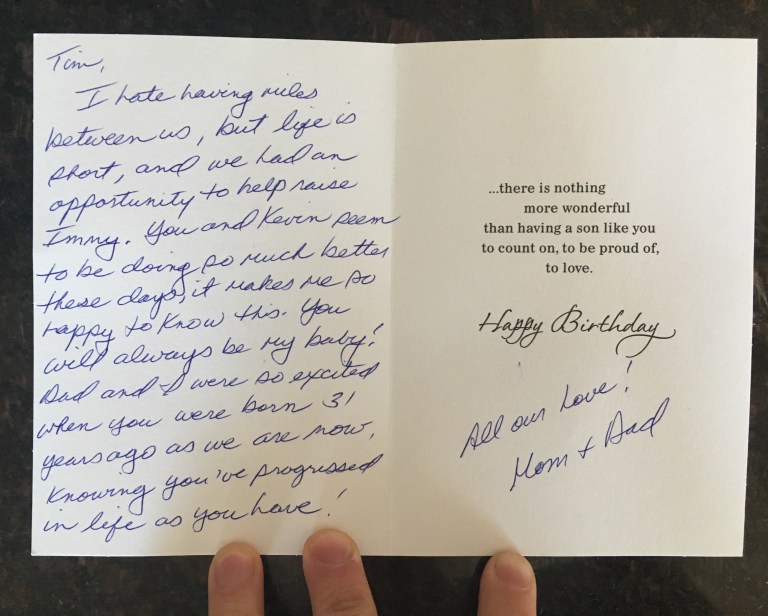 Tim,
I hate having miles
between us, but life is
short, and we had an
opportunity to help raise
Immy. You and Kevin seem
to be doing so much better
these days, it makes me so
happy to know this. You
will always be my baby!
Dad and I were so excited
when you were born 31
years ago as we are now,
knowing you've progressed
in life as you have!
...there is nothing
more wonderful
than having a son like you
to count on, to be proud of,
to love.
Happy Birthday
All our Love!
Mom + Dad